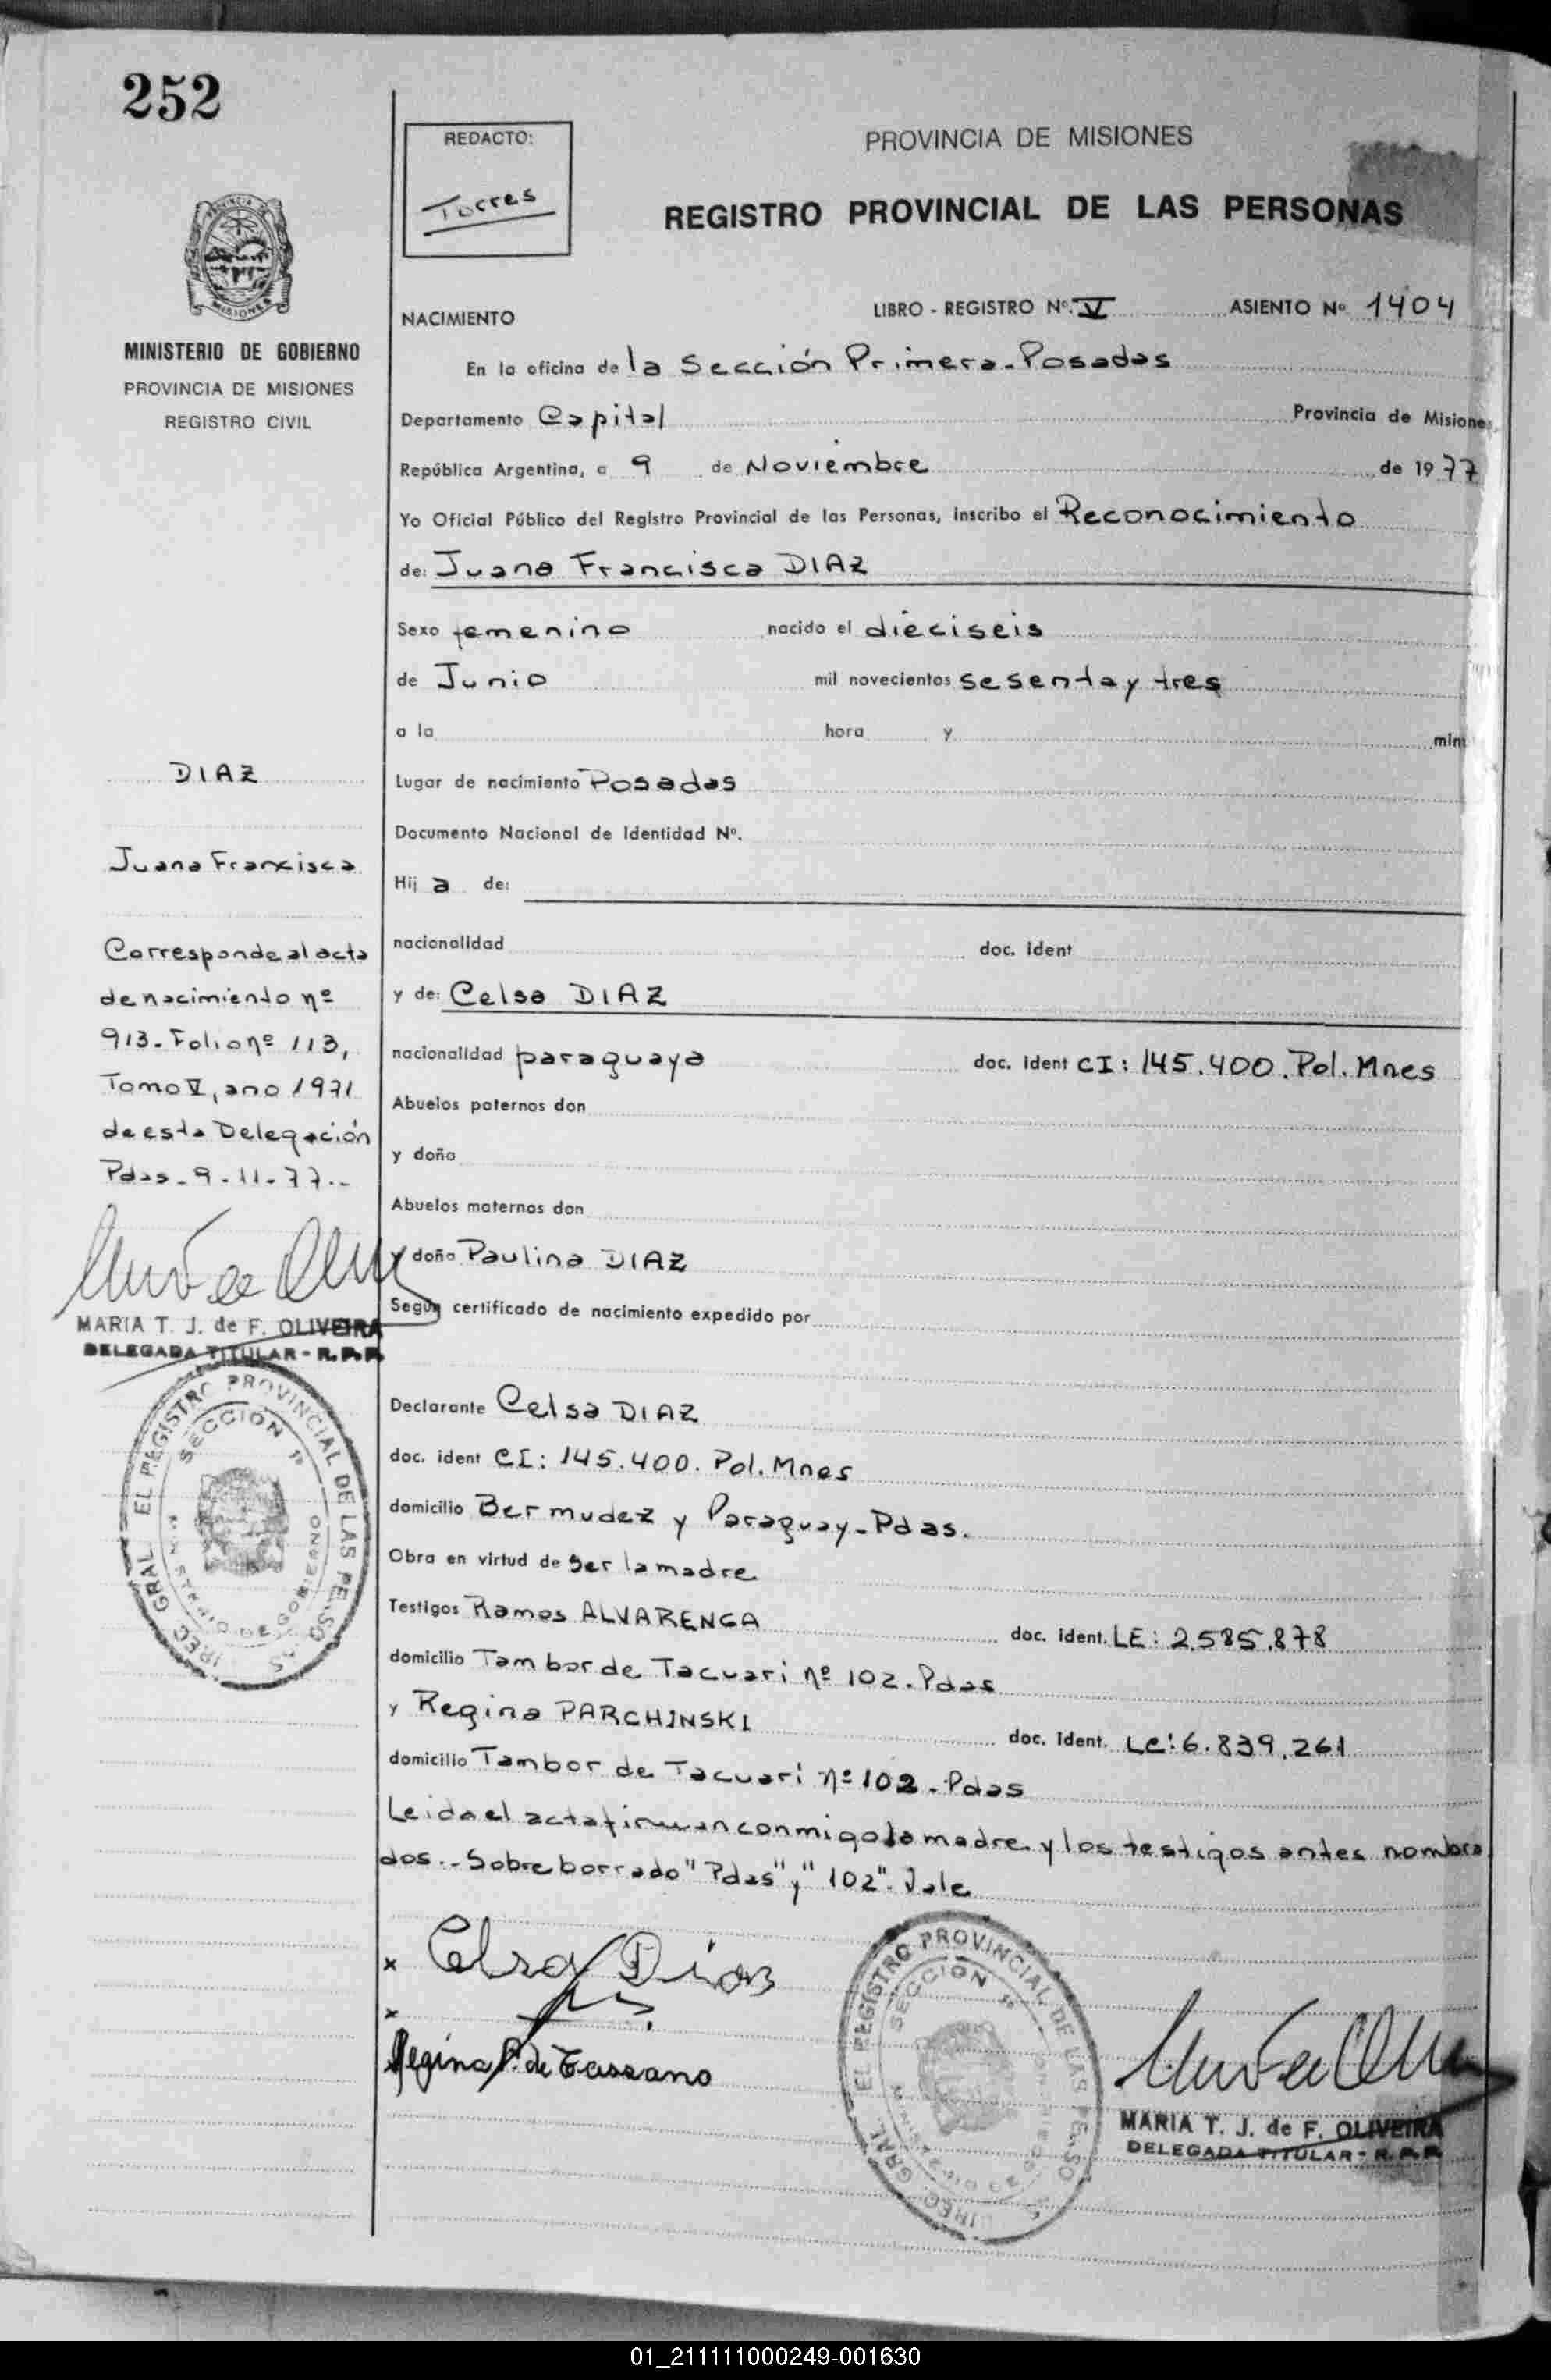 252
REDACTO:
Torres
PROVINCIA DE MISIONES
REGISTRO PROVINCIAL DE LAS PERSONAS
PROVINCIA DE
MISIONES
MINISTERIO DE GOBIERNO
PROVINCIA DE MISIONES
REGISTRO CIVIL
NACIMIENTO
LIBRO - REGISTRO Nº. V ASIENTO Nº 1404
En la oficina de la Sección Primera - Posadas
Departamento Capital Provincia de Misiones
República Argentina, a 9 de Noviembre de 1977
Yo Oficial Público del Registro Provincial de las Personas, inscribo el Reconocimiento
de: Juana Francisca DIAZ
Sexo femenino nacido el dieciseis
de Junio mil novecientos sesenta y tres
a la hora y min
Lugar de nacimiento Posadas
Documento Nacional de Identidad Nº.
Hij a de:
nacionalidad doc. ident
y de: Celsa DIAZ
nacionalidad paraguaya doc. ident CI: 145.400. Pol. Mnes
Abuelos paternos don
y doña
Abuelos maternos don
y doña Paulina DIAZ
Según certificado de nacimiento expedido por
Declarante Celsa DIAZ
doc. ident CI: 145.400. Pol. Mnes
domicilio Bermudez y Paraguay - Pdas.
Obra en virtud de ser la madre
Testigos Ramos ALVARENGA doc. ident. LE: 2.585.878
domicilio Tambor de Tacuari nº 102. Pdas
y Regina PARCHINSKI doc. ident. LC: 6.839.261
domicilio Tambor de Tacuari nº 102 - Pdas
Leida el acta firman conmigo la madre y los testigos antes nombra
dos.- Sobre borrado "Pdas" y "102". Vale
DIAZ
Juana Francisca
Corresponde al acta
de nacimiento nº
913 - Folio nº 113,
Tomo V, ano 1971
de esta Delegación
Pdas - 9 - 11 - 77.-
MARIA T. J. de F. OLIVEIRA
DELEGADA TITULAR - R.P.P.
DIREC. GRAL. EL REGISTRO PROVINCIAL DE LAS PERSO AS
SECCION 1ª
MINISTERIO DE GOBIERNO
x Celsa Diaz
x
Regina P. de Cassano
DIREC. GRAL. EL REGISTRO PROVINCIAL DE LAS PERSO S
SECCION 1ª
MINISTERIO DE GOBIERNO
MARIA T. J. de F. OLIVEIRA
DELEGADA TITULAR - R.P.P.
01_211111000249-001630